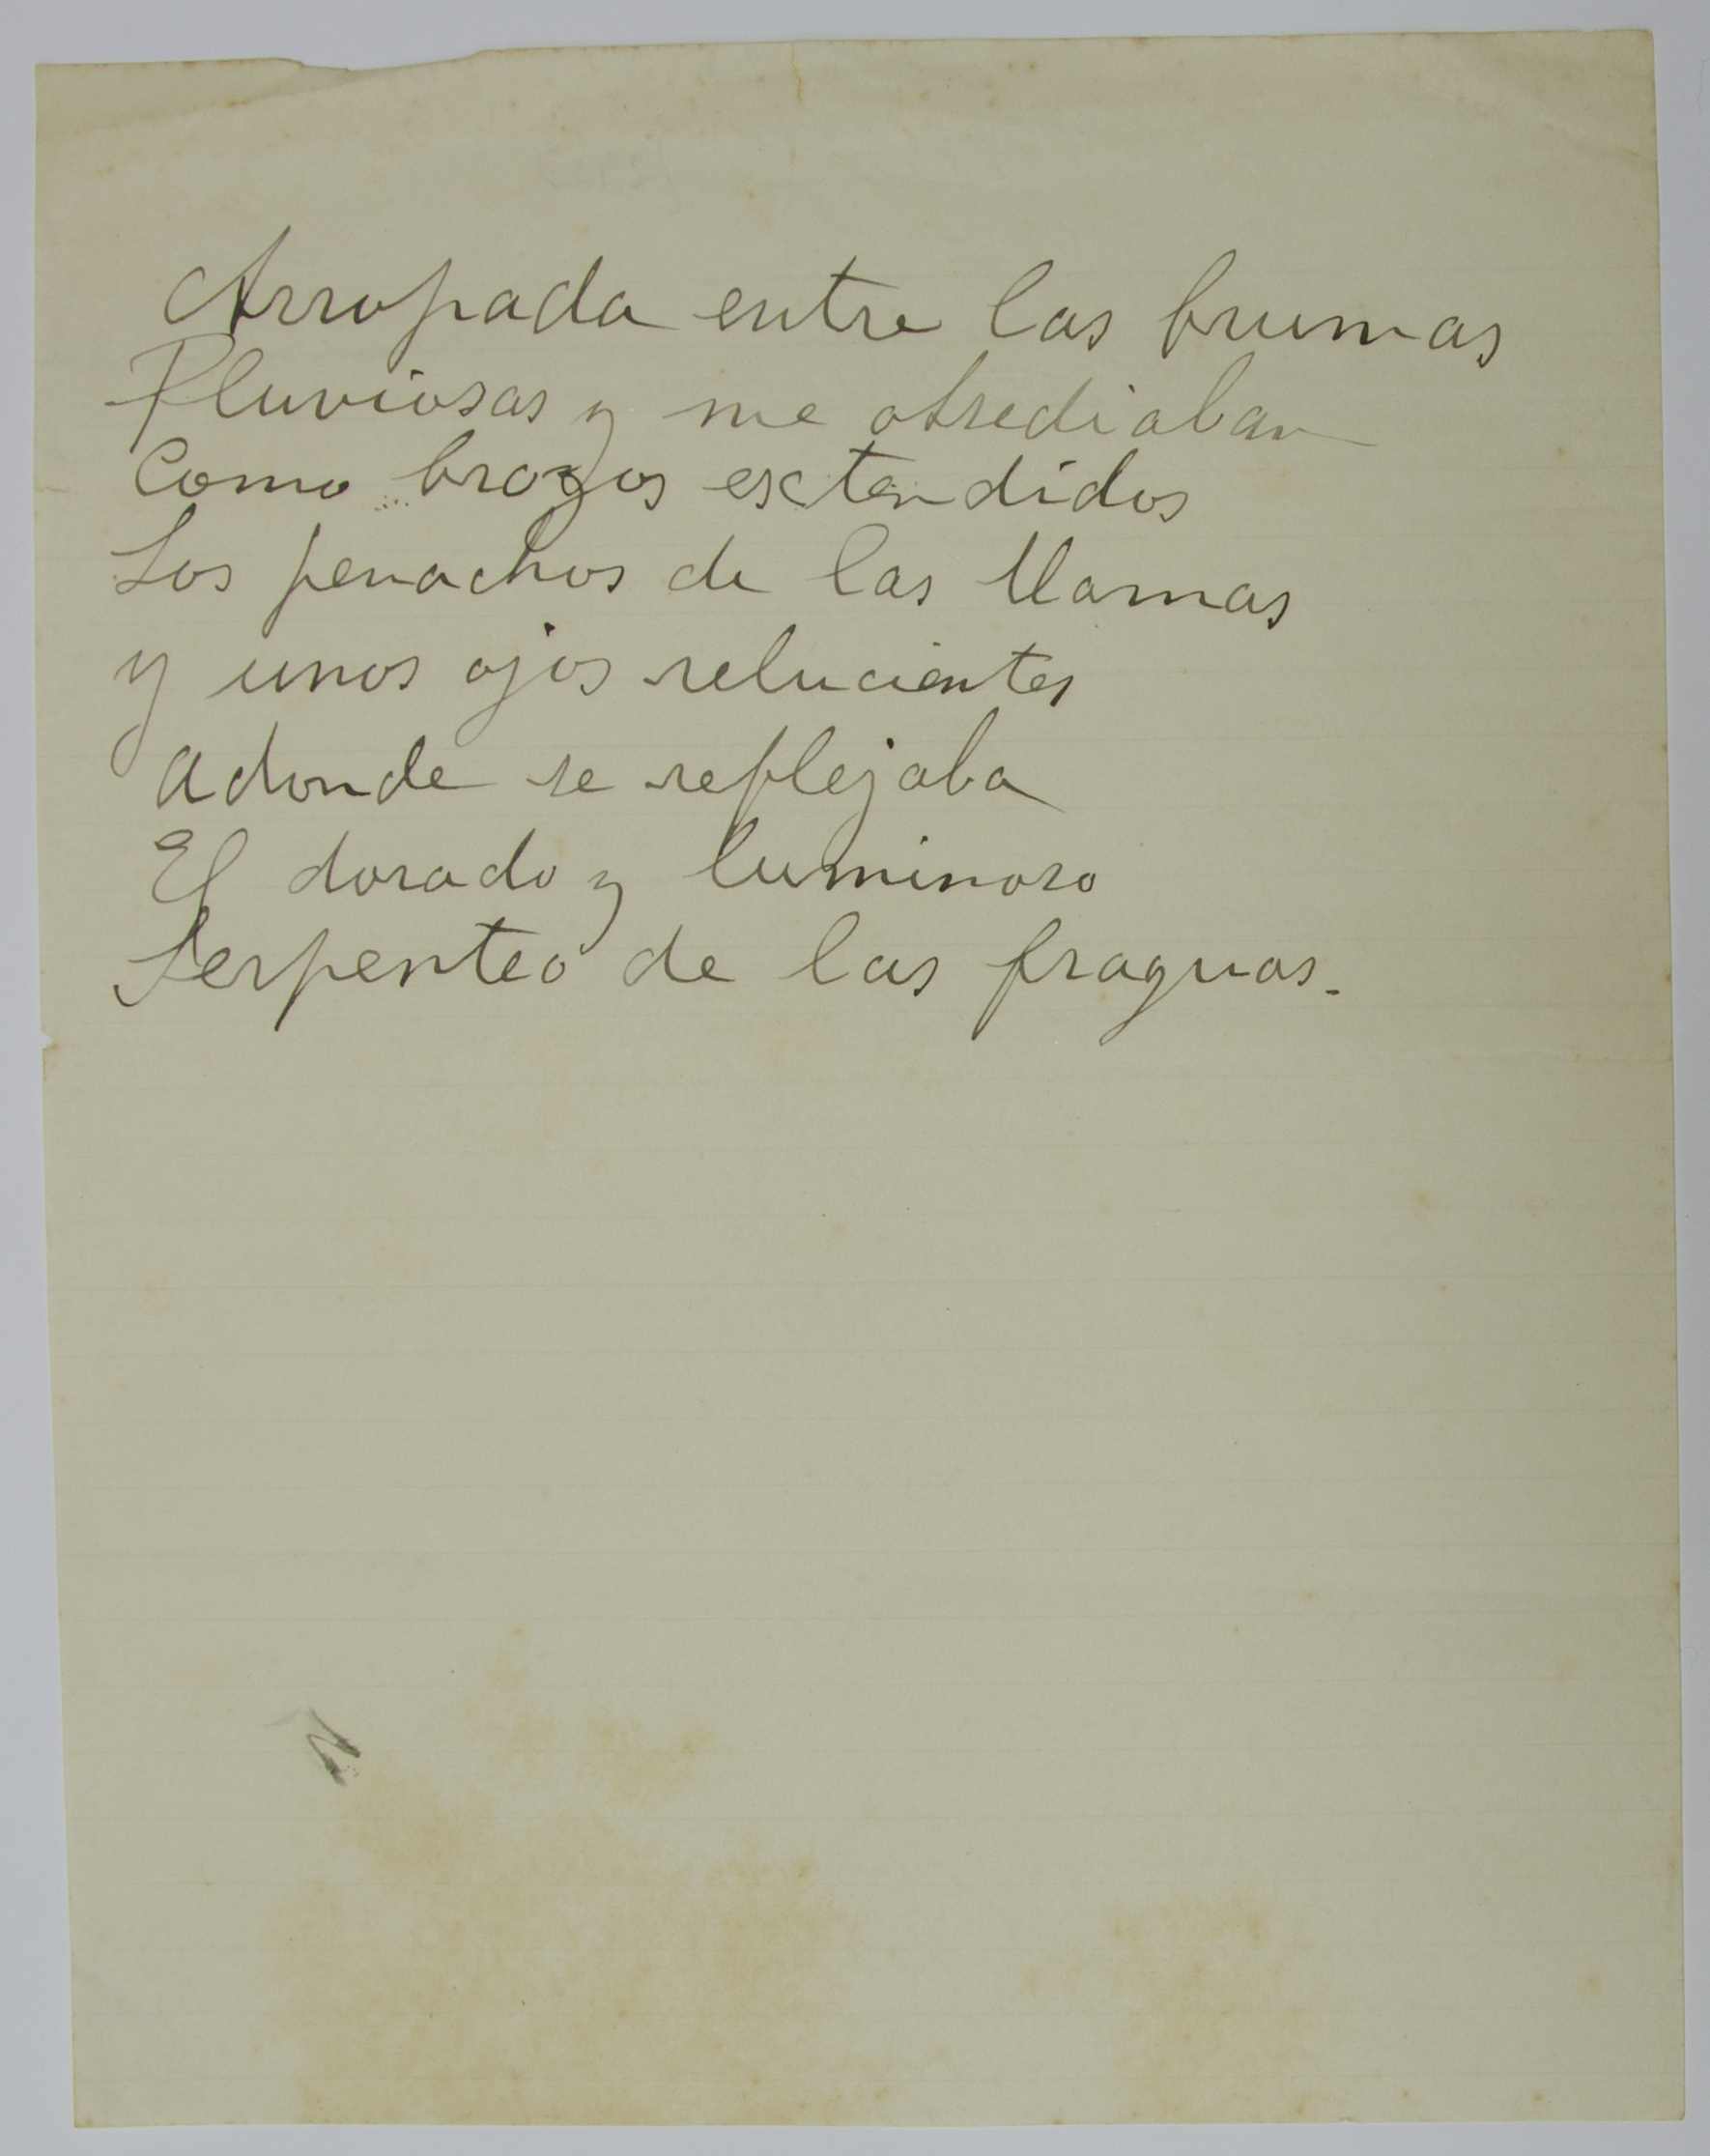 Arropada entre las brumas
Pluviosas y me atrediaban
Como brazos extendidos
Los penachos de las llamas
y unos ojos relucientes
adonde se reflejaba
El dorado y luminoso
Serpenteo de las fraguas.